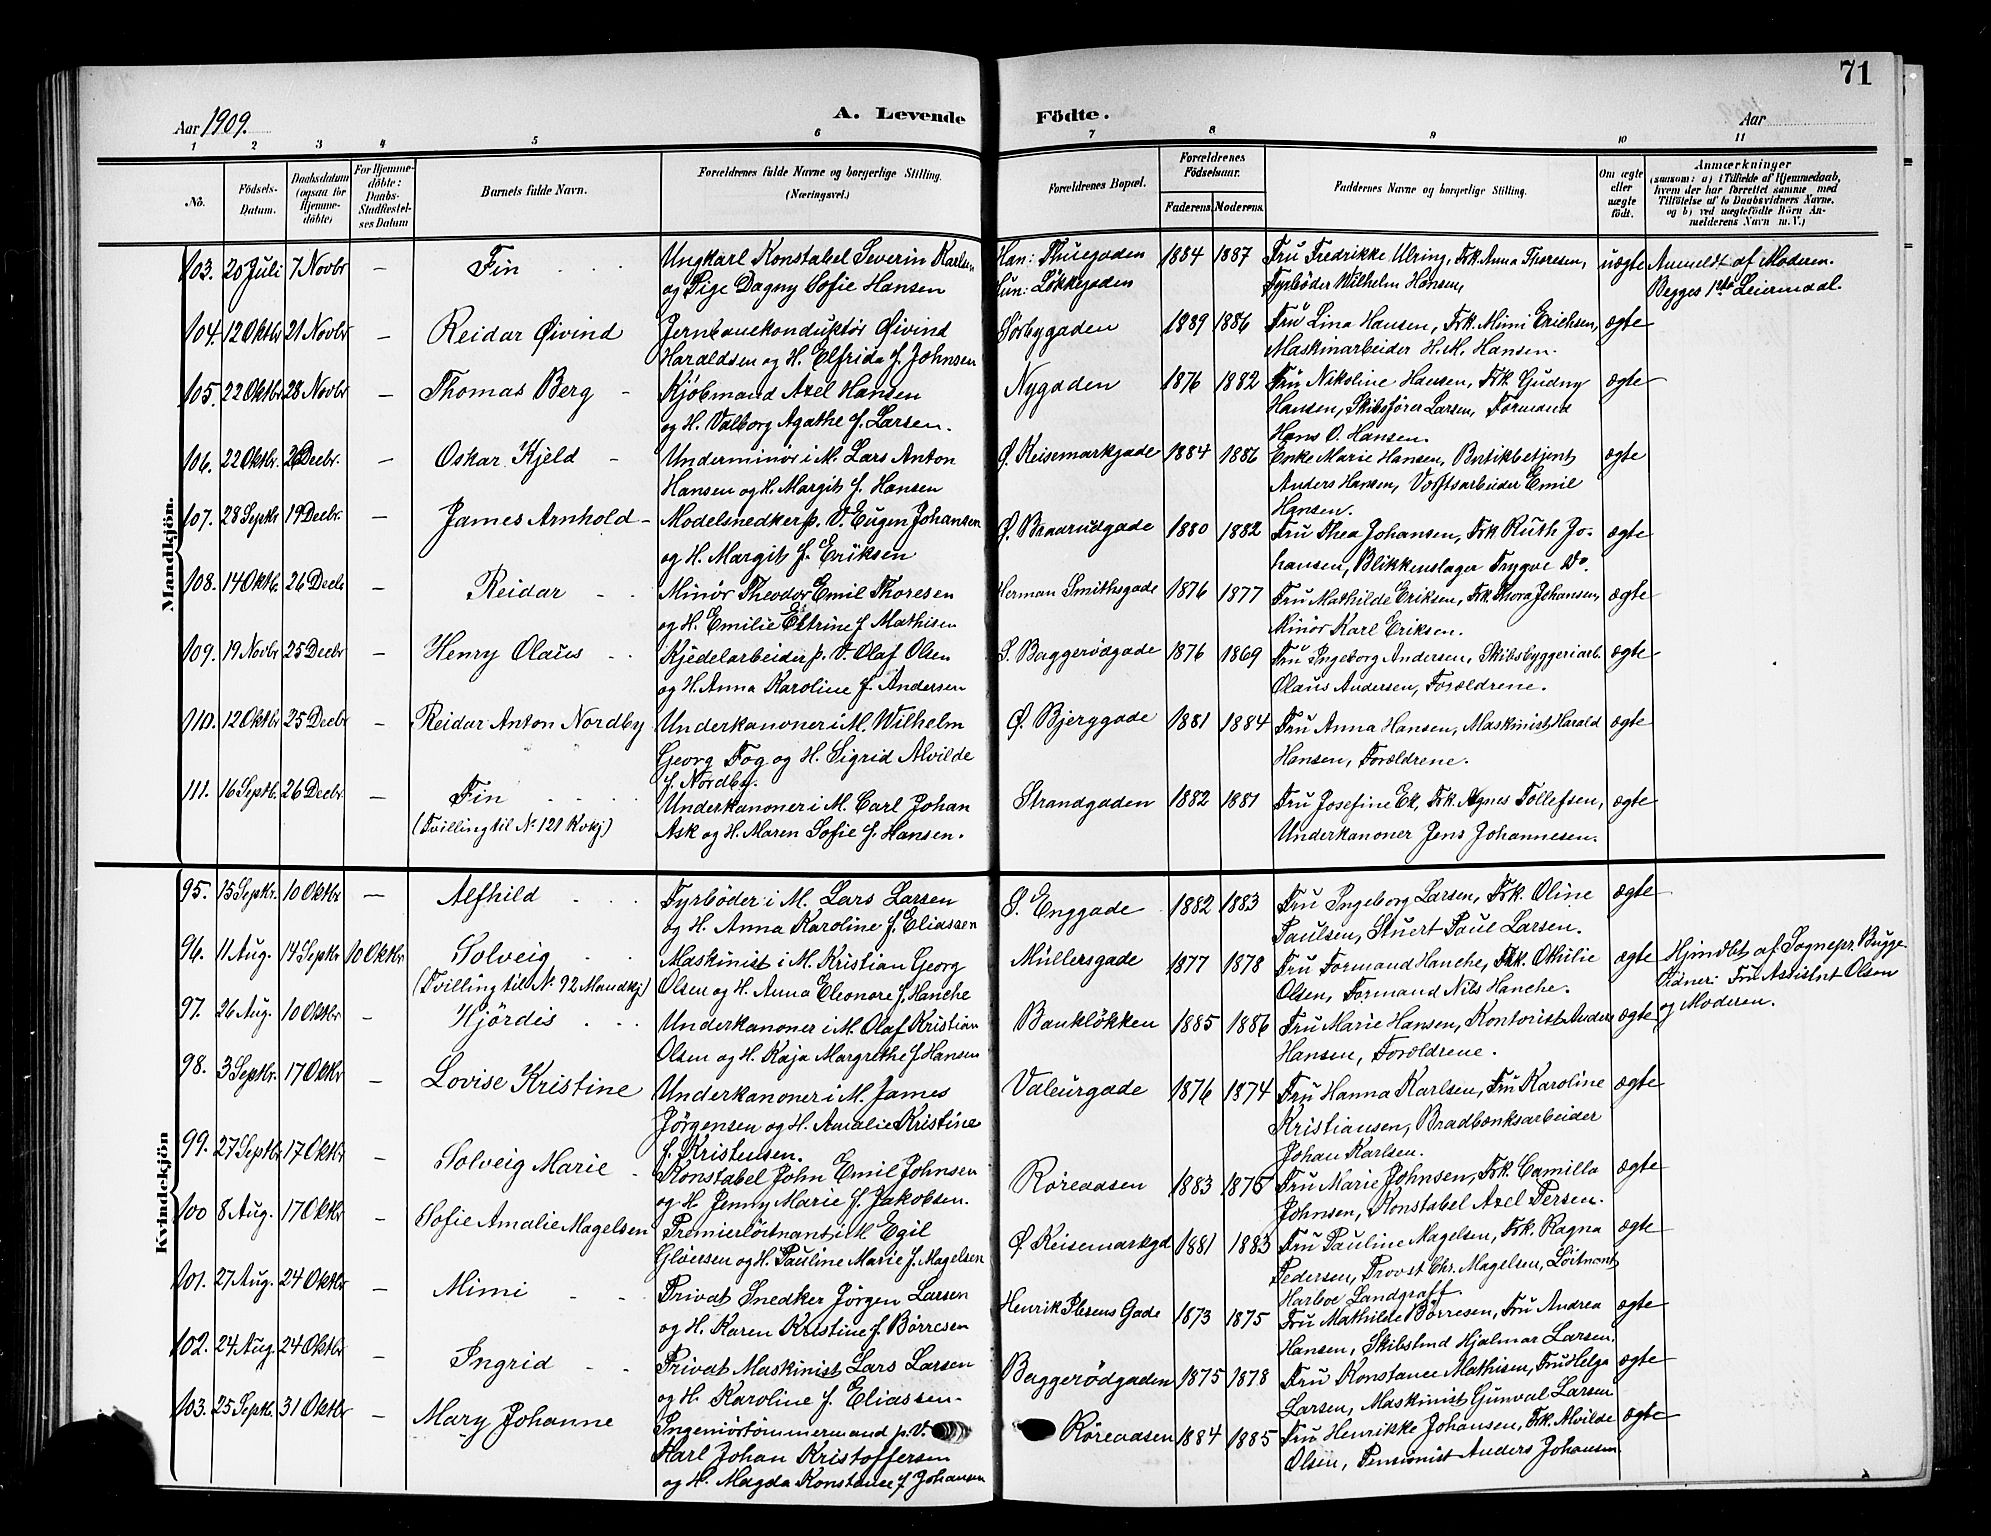 71
Aar 1909.
A. Levende Födte.
Aar
1 2 3 4 5 6 7 8 9 10 11
No. Födsels-Datum. Daabsdatum (ogsaa for Hjemmedöbte) For Hjemmedöbte: Daabs-Stadfæstelses Datum Barnets fulde Navn. Forældrenes fulde Navne og borgerlige Stilling. (Næringsvei.) Forældrenes Bopæl. Forældrenes Födselsaar. Faderens. Moderens. Faddernes Navne og borgerlige Stilling. Om ægte eller uægte födt. Anmærkninger (saasom: a) i Tilfælde af Hjemmedaab, hvem der har forrettet samme med Tilföielse af to Daabsvidners Navne. og b) ved uægtefödte Börn Anmelderens Navn m. V.)
Mandkjön.
103. 20 Juli 7 Novbr – Fin Ungkarl Konstabel Severin Karlsen Han: Thisegaden 1884 1887 Fru Fredrikke Ulring, Frk. Anna Thoresen, uægte Anmeldt af Moderen.
og Pige Dagny Sofie Hansen Hun: Løkkegaden Fyrbøder Wilhelm Hansen, Begges 1ste Leiermaal.
104. 12 Oktbr 21 Novbr – Reidar Øivind Jernbanekonduktør Øivind Sørbygaden 1889 1886 Fru Lina Hansen, Frk. Mimi Erichsen, ægte
Haraldsen og H. Elfrida f. Johnsen Maskinarbeider H. M. Hansen.
105. 22 Oktbr 28 Novbr – Thomas Berg – Kjøbmand Axel Hansen Nygaden 1876 1882 Fru Nikoline Hansen, Frk. Gudny ægte
og H. Valborg Agathe f. Larsen. Hansen, Skibsfører Larsen, Formand
Hans O. Hansen.
106. 22 Oktbr. 26 Decbr. – Oskar Kjeld – Underminør i M. Lars Anton Ø. Keisemarkgade 1884 1886 Enke Marie Hansen, Butikbetjent ægte
Hansen og H. Margit f. Hansen Anders Hansen, Værftsarbeider Emil
Hansen.
107. 28 Septbr 19 Decbr. – James Arnhold – Modelsnedker p. V. Eugen Johansen Ø. Braarudgade 1880 1882 Fru Thea Johansen, Frk Ruth Jo- ægte
og H. Margit f. Eriksen hansen, Blikkenslager Trygve Do.
108. 14 Oktb. 26 Decb – Reidar Minør Theodor Emil Thoresen Herman Smithsgade 1876 1877 Fru Mathilde Eriksen, Frk. Thora Johansen, ægte
og H. Emilie Estrine f. Mathisen Minør Karl Eriksen.
109. 19 Novbr 25 Decbr – Henry Olaus Kjedelarbeider p. V. Olaf Olsen S. Baggerødgade 1876 1869 Fru Ingeborg Andersen, Skibsbyggeriarb. ægte
og H. Anna Karoline f. Andersen Olaus Andersen, Forældrene.
110. 12 Oktbr 25 Decbr – Reidar Anton Nordby Underkanoner i M. Wilhelm Ø. Bjerggade 1881 1884 Fru Anna Hansen, Maskinist Harald ægte
Georg Fog og H. Sigrid Alvilde Hansen, Forældrene.
f. Nordby.
111. 16 Septb. 26 Decbr. – Fin Underkanoner i M. Carl Johan Strandgaden 1882 1881 Fru Josefine Ek, Frk. Agnes Tollefsen, ægte
(Tvilling til No. 121 Kvkj) Ask og H. Maren Sofie f. Hansen. Underkanoner Jens Johannesen.
Kvindekjön
95. 15 Septbr. 10 Oktbr – Alfhild Fyrbøder i M. Lars Larsen S. Enggade 1882 1883 Fru Ingeborg Larsen, Frk. Oline ægte
og H. Anna Karoline f. Eliassen Paulsen, Stuert Paul Larsen.
96. 11 Aug. 14 Septbr 10 Oktbr. Solveig Maskinist i M. Kristian Georg Müllersgade 1877 1878 Fru Formand Hanche, Frk. Othilie ægte Hjmdbt af Sognepr. Bugge
(Tvilling til No 92 Mandkj) Olsen og H. Anna Eleonore f. Hanche Olsen, Formand Nils Hanche. Vidner: Fru Assistnt Olsen
97. 26 Aug. 10 Oktbr – Hjördis Underkanoner i M. Olaf Kristian Bankløkken 1885 1886 Fru Marie Hansen, Kontorist Anders ægte og Moderen.
Olsen og H. Kaja Margrethe f. Hansen Hansen, Forældrene.
98. 3 Septbr. 17 Oktbr – Lovise Kristine Underkanoner i M. James Valeurgade 1876 1874 Fru Hanna Karlsen, Fru Karoline ægte
Jørgensen og H. Amalie Kristine Kristiansen, Bradbænksarbeider
f. Kristensen. Johan Karlsen.
99. 27 Septbr 17 Oktbr – Solveig Marie – Konstabel John Emil Johnsen Røreaasen 1883 1875 Fru Marie Johnsen, Frk. Camilla ægte
og H. Jenny Marie f. Jakobsen. Johnsen, Konstabel Axel Persen.
100 8 Aug. 17 Oktbr – Sofie Amalie Magelsen Premierløitnant i M Egil Ø. Keisemarkgd 1881 1883 Fru Pauline Magelsen, Frk. Ragna ægte
Gløersen og H. Pauline Marie f. Magelsen Pedersen, Provst Chr. Magelsen, Løitnant
Harboe Landgraff.
101. 27 Aug. 24 Oktbr – Mimi Privat Snedker Jørgen Larsen Henrik Ibsens Gade 1873 1875 Fru Mathilde Børresen, Fru Andrea ægte
og H. Karen Kristine f. Børresen Hansen, Skibstmd Hjalmar Larsen.
102. 24 Aug. 24 Oktbr – Ingrid Privat Maskinist Lars Larsen Baggerødgaden 1875 1878 Fru Konstance Mathisen, Fru Helga ægte
og H. Karoline f. Eliassen. Larsen, Maskinist Gunval Larsen
103. 25 Septb. 31 Oktbr – Mary Johanne Ingeniørtømmermand p. V. Røreaasen 1884 1885 Fru Henrikke Johansen, Frk. Alvilde ægte
Karl Johan Kristoffersen Olsen, Pensionist Anders Johansen
og H. Magda Konstance f Johansen